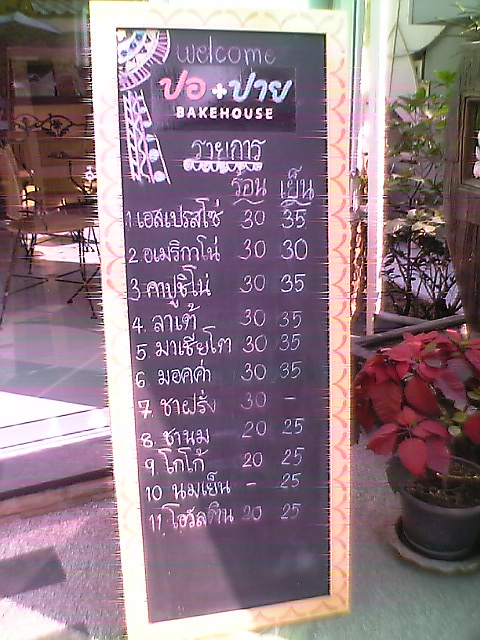 welcome
ปอ+ปาย
BAKEHOUSE
รายการ
ร้อน เย็น
1. เอสเปรสโซ่ 30 35
2. อเมริกาโน่ 30 30
3. คาปูชิโน่ 30 35
4. ลาเต้ 30 35
5. มาเชียโต 30 35
6. มอคค่า 30 35
7. ชาฝรั่ง 30 -
8. ชานม 20 25
9. โกโก้ 20 25
10 นมเย็น - 25
11. โอวัลติน 20 25